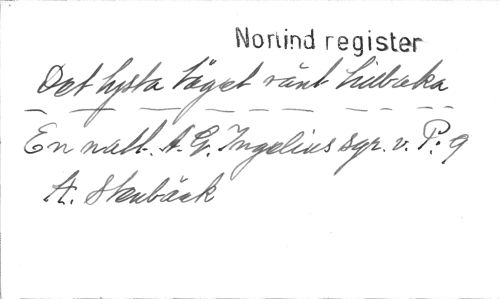 Norlind register
Det lysta tåget vänt tillbaka
En natt. A. G. Ingelius sgr. v. P. 9
A. Stenbäck